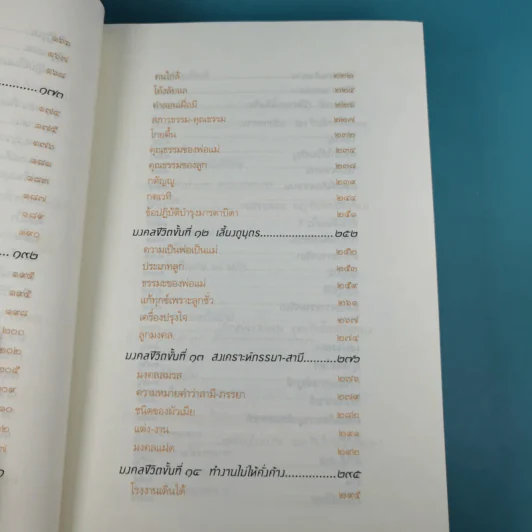 ๑๗๐
๑๗๔
๑๗๕
๑๗๖
๑๘๑
๑๘๗
๑๘๗
๑๘๙
๑๙๐
๑๙๒
๑๙๕
คนใกล้
สภาวธรรม-คุณธรรม ๒๒๗
โกยตื้น ๒๓๒
คุณธรรมของพ่อแม่ ๒๓๔
คุณธรรมของลูก ๒๓๘
กตัญญู ๒๓๙
กตเวที
ข้อปฏิบัติบำรุงมารดาบิดา ๒๕๑
มงคลชีวิตขั้นที่ ๑๒ เลี้ยงดูบุตร ๒๕๒
ความเป็นพ่อเป็นแม่ ๒๕๒
ประเภทลูก ๒๕๓
ธรรมะของพ่อแม่ ๒๕๕
แก้ทุกข์เพราะลูกชั่ว ๒๖๑
เครื่องปรุงใจ ๒๖๗
ลูกมงคล ๒๗๔
มงคลชีวิตขั้นที่ ๑๓ สงเคราะห์ภรรยา-สามี ๒๗๖
มงคลสมรส ๒๗๖
ความหมายคำว่าสามี-ภรรยา ๒๗๙
ชนิดของผัวเมีย ๒๘๐
แต่ง-งาน
มงคลแฝด
มงคลชีวิตขั้นที่ ๑๔ ทำงานไม่ให้คั่งค้าง ๒๙๕
โรงงานเดินได้